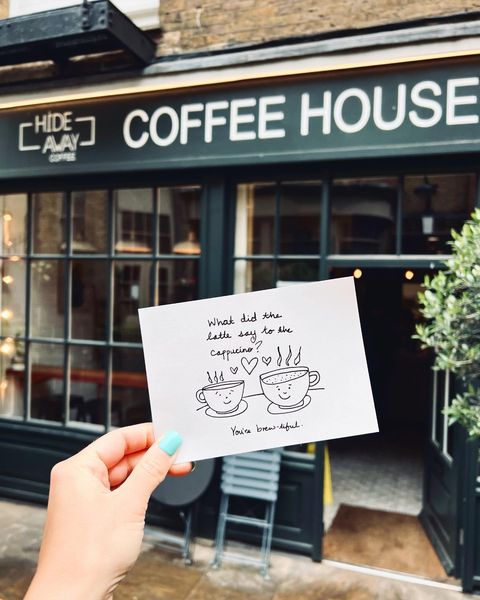 HIDE
AWAY
COFFEE
COFFEE HOUSE
What did the
latte say to the
cappucino?
You're brew-tiful.